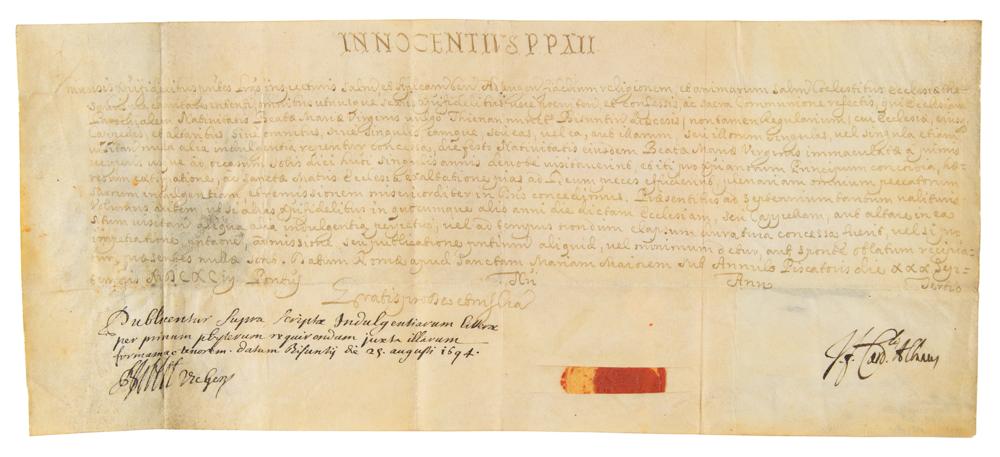 INNOCENTIUS P P XII
Universis Xpifidelibus pntes Lras inspecturis Salut et Aplicam Ben Ad augendam fidelium religionem, et animarum salut Coelestibus Ecclesiae the
sauris pia charitate intenti omnibus utriusque sexus Xpifidelibus vere poeniten et Confessis, ac Sacra Communione refectis, qui Ecclesiam
Parochialem Nativitatis Beatae Mariae Virginis Bisuntin Dioecesis, non tamen Regularium, cui Ecclesiae, eiusq
Cappellis, et altaribus, sive omnibus, sive singulis eamque, seu eas, vel ea, aut illarum, seu illorum singulas, vel singula etiam
visitan nulla alia indulgentia reperitur concessa, die festo Nativitatis eiusdem Beatae Mariae Virginis immaculatae a primis
vesperis usque ad occasum solis diei huiusmodi singulis annis devote visitaverint, et ibi pro Xpianorum Principum concordia, hae
resum extirpatione, ac Sanctae Matris Ecclesiae exaltatione pias ad Deum preces effuderint, plenariam omnium peccatorum
suorum indulgentiam et remissionem misericorditer in Dno concedimus. Praesentibus ad septennium tantum valituris
Volumus autem, ut si alias Xpifidelibus in quocumque alio anni die dictam Ecclesiam, seu Cappellam, aut altare in ea
situm visitan aliqua alia indulgentia perpetuo, vel ad tempus nondum elapsum duratura concessa fuerit, vel si pro
impetratione, pntaone, admissione, seu publicatione pntium aliquid, vel minimum detur, aut sponte oblatum recipia
tur, praesentes nullae sint. Datum Romae apud Sanctam Mariam Maiorem Sub Annulo Piscatoris die XXX
MDCXCIIII Pontus Nri Ann Tertio
Gratis pro Deo et
Publicentur Supra Scriptae Indulgentiarum litterae
per primum pbyterum requirendum juxta illarum
formam ac tenorem. datum Bisuntii die 28. augusti 1694.
Vic Gen
J. f. Card. Albani